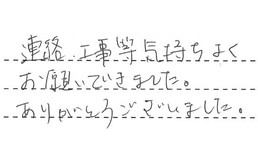 連絡、工事等気持ちよく
お願いできました。
ありがとうございました。